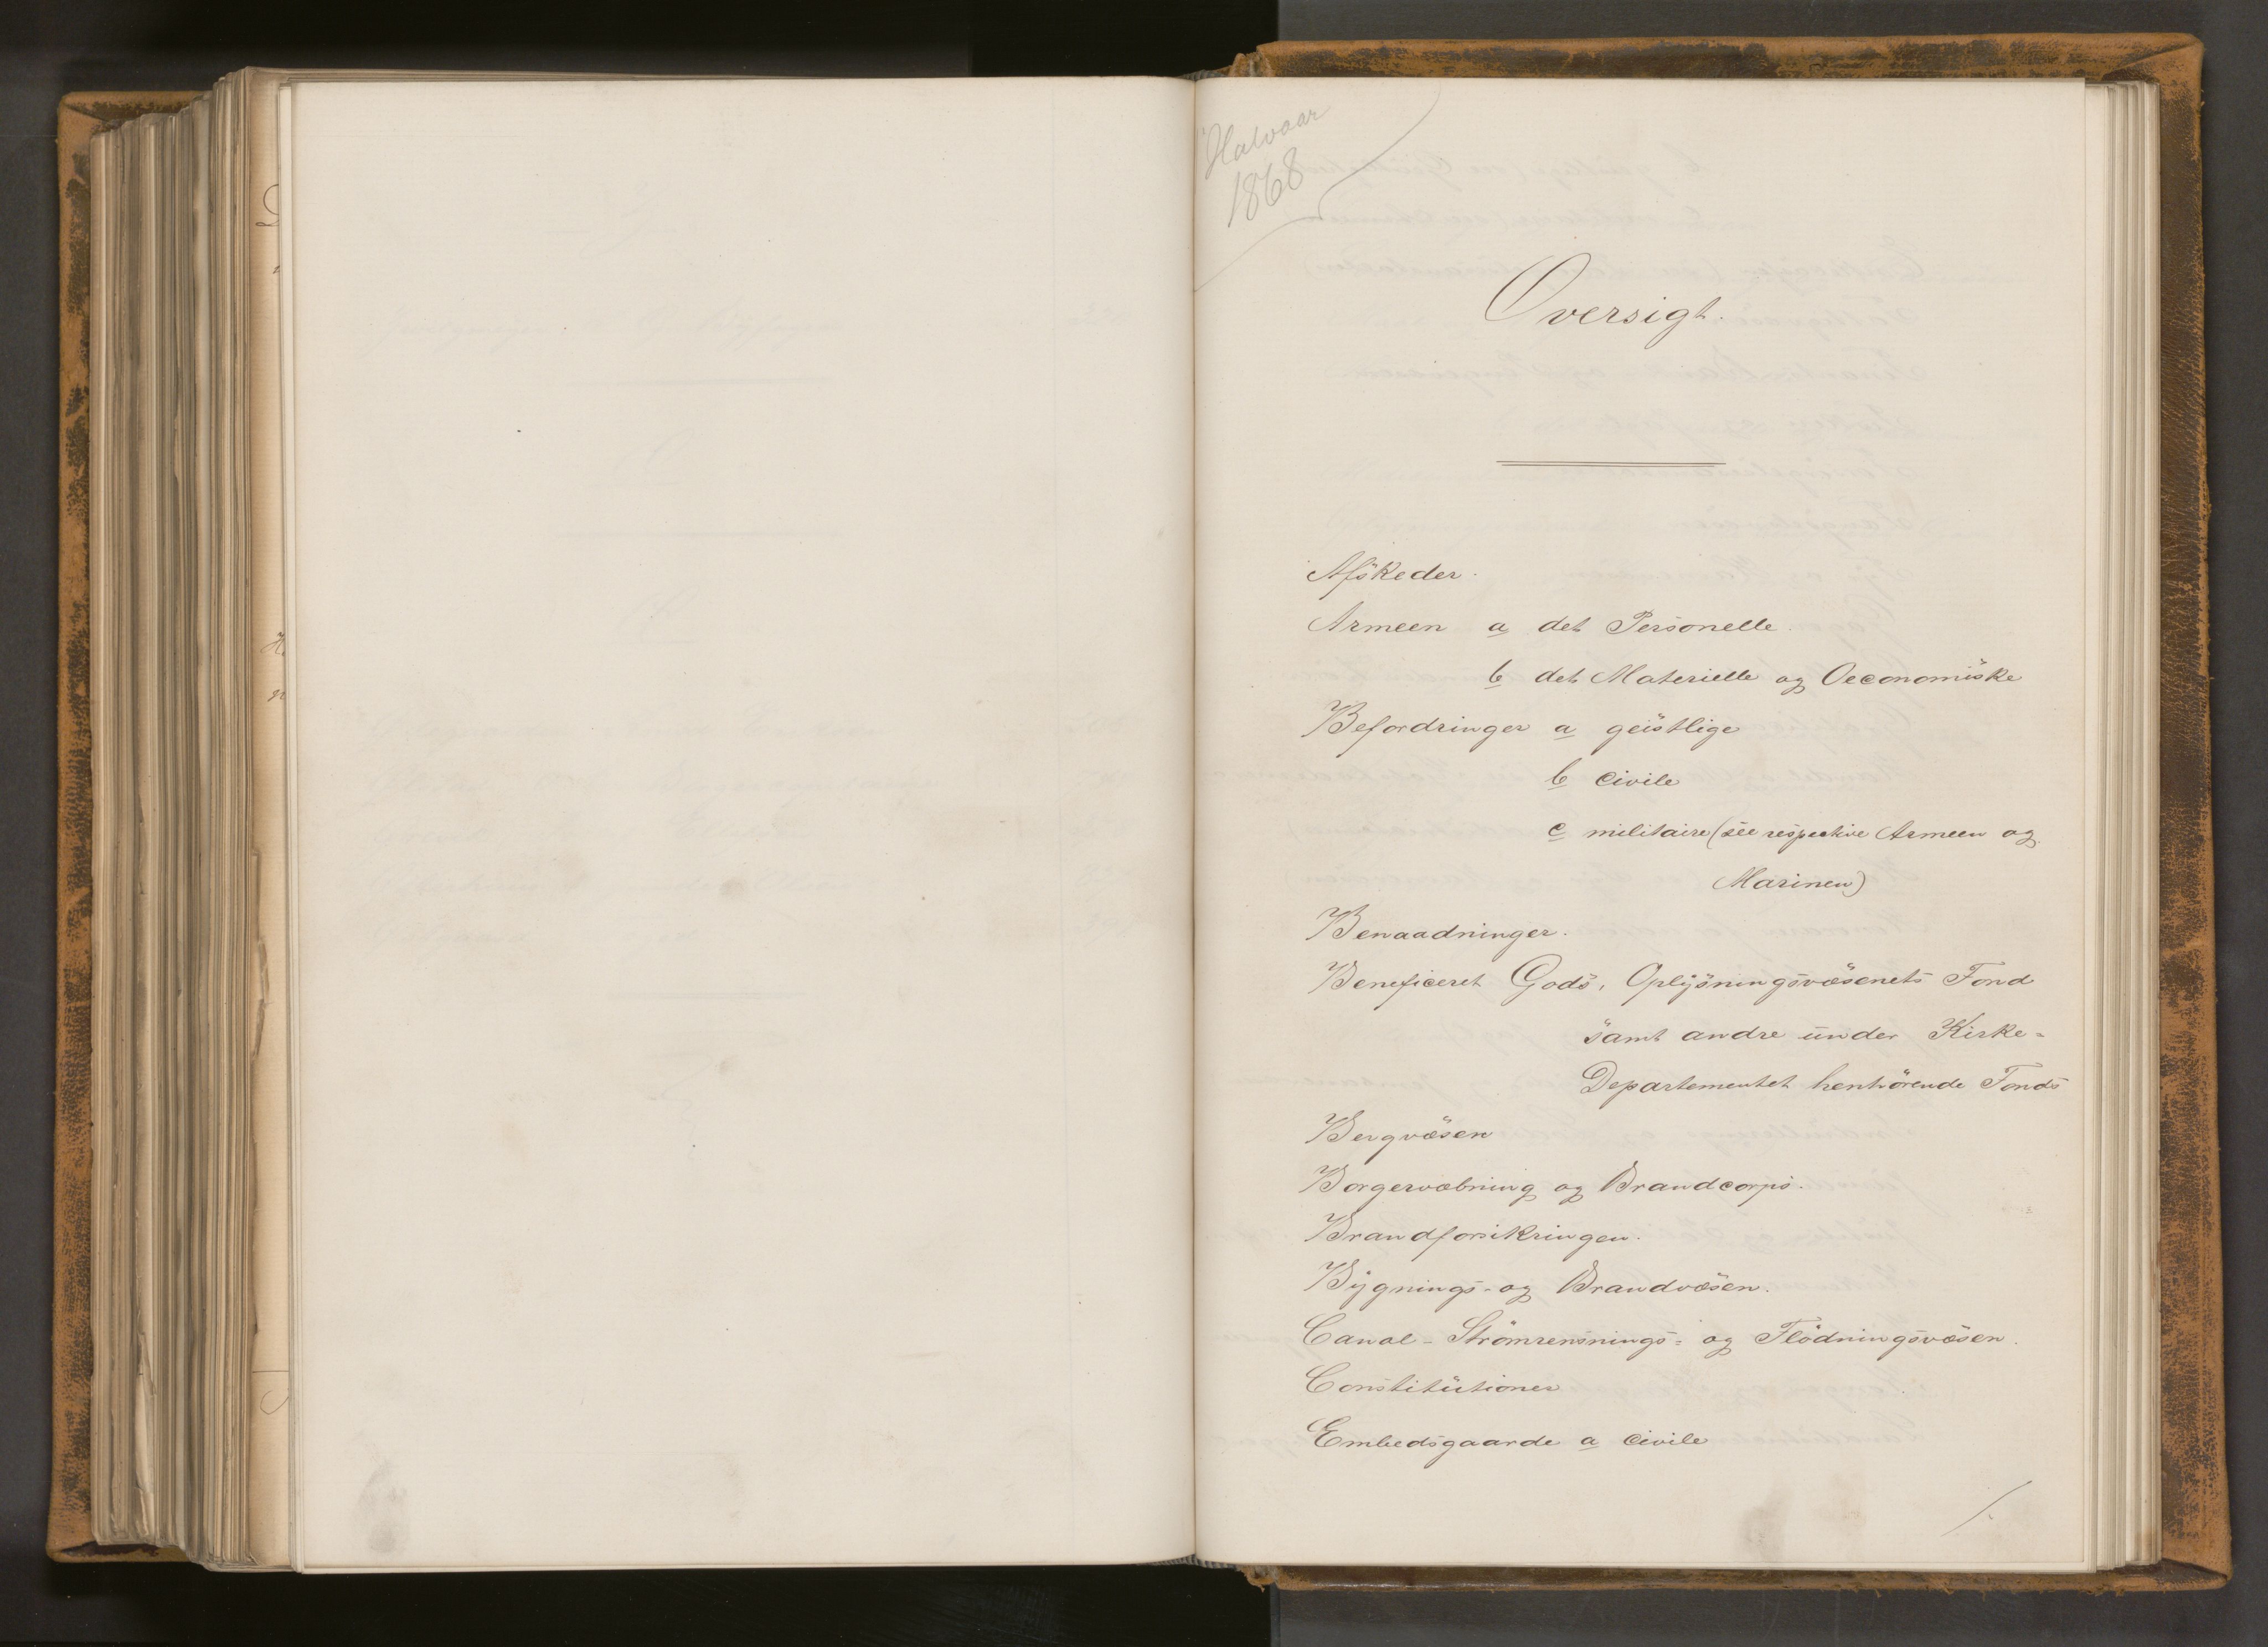 Halvaar
1868
Oversigt.
Afskeder.
Armeen a det Personelle.
b det Materielle og Oeconomiske
Befordringer a geistlige
b civile
c militaire (see respective Armeen og
Marinen)
Benaadninger.
Beneficeret Gods, Oplysningsvæsenets Fond
samt andre under Kirke-
Departementet henhörende Fonds
Bergvæsen
Borgervæbning og Brandcorps.
Brandforsikringen.
Bygnings- og Brandvæsen.
Canal- Strömrensnings- og Flödningsvæsen.
Constitutioner
Embedsgaarde a civile